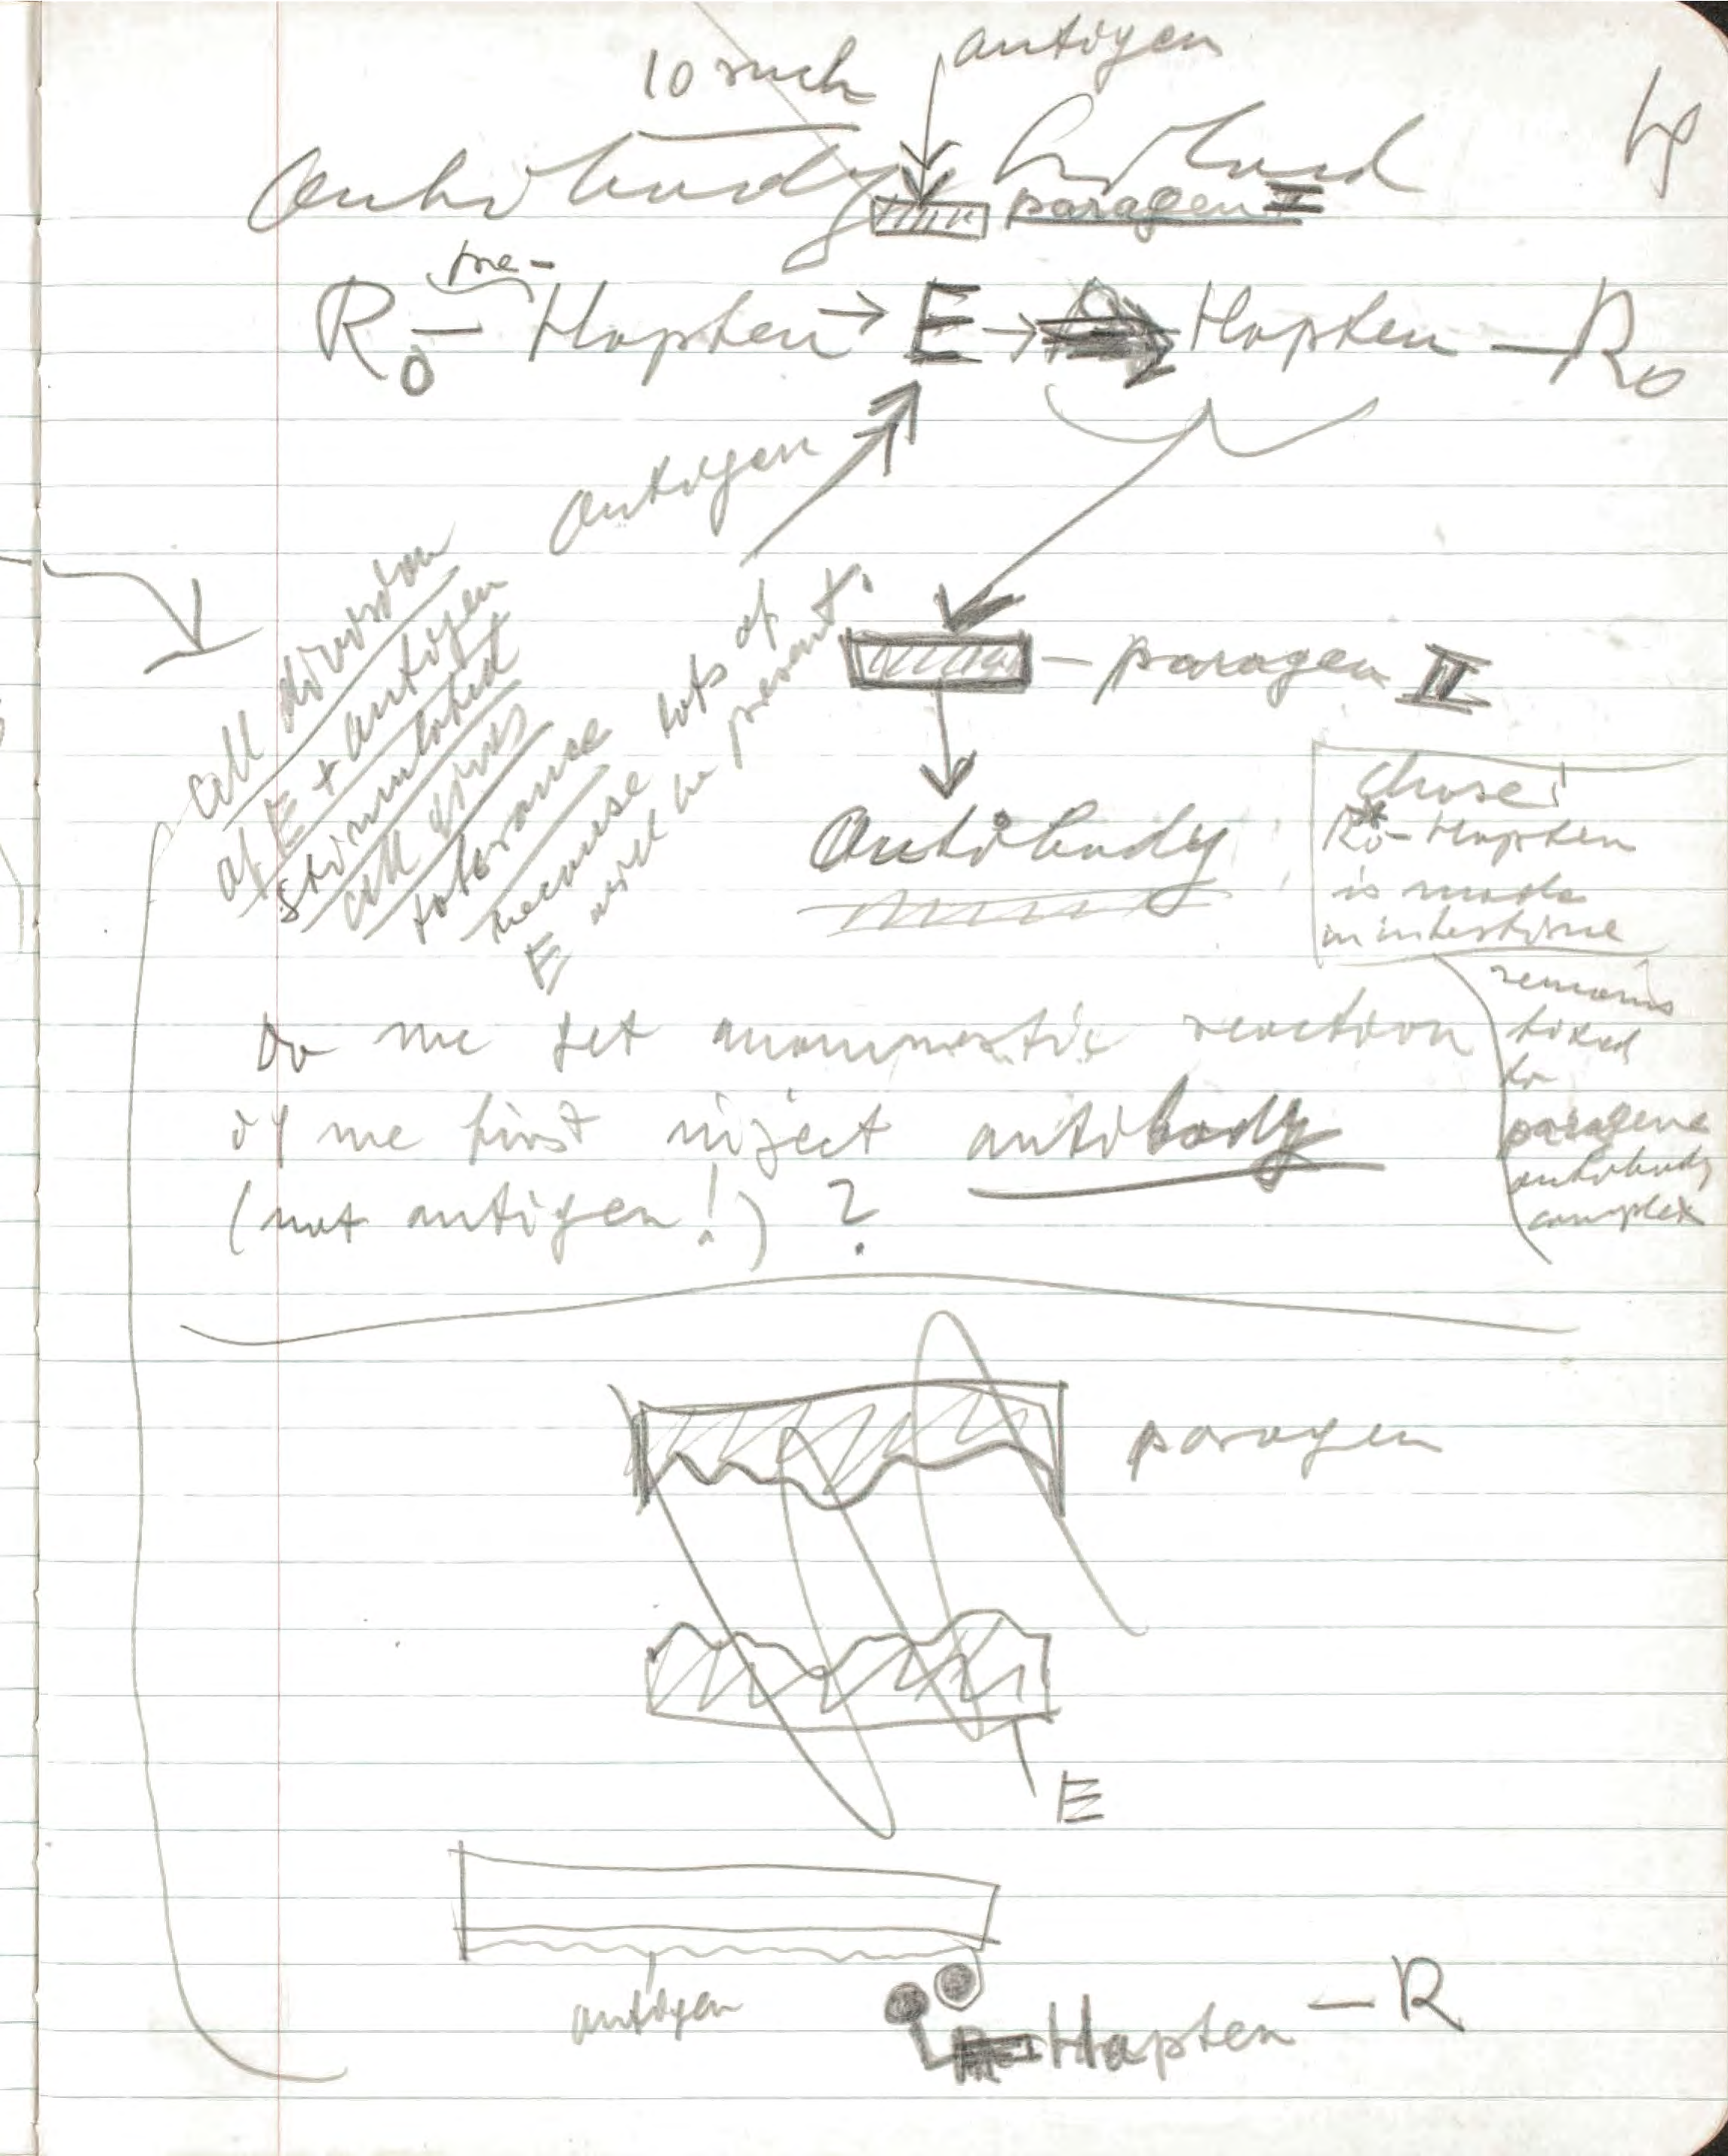 antigen
10 such
paragen I
pre-
R₀ — Hapten → E → Hapten — R₀
antigen
cell division
of E + antigen
stimulated
cell gives
tolerance
because lots of
E will be present.
— paragen II
Antibody
R₀* - Hapten
is made
in intestine
remains
fixed
to
paragene
antibody
complex
Do we get anamnestic reaction
if we first inject antibody
(not antigen!) ?
paragen
E
antigen
Hapten — R